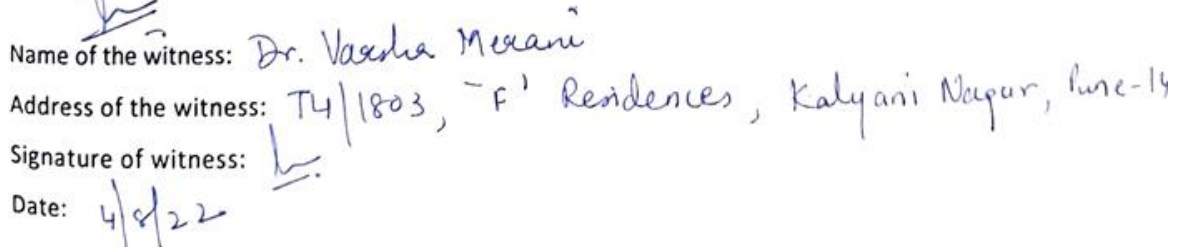 Name of the witness: Dr. Varsha Merani
Address of the witness: T4/1803, 'F' Residences, Kalyani Nagar, Pune-14
Signature of witness:
Date: 4/8/22